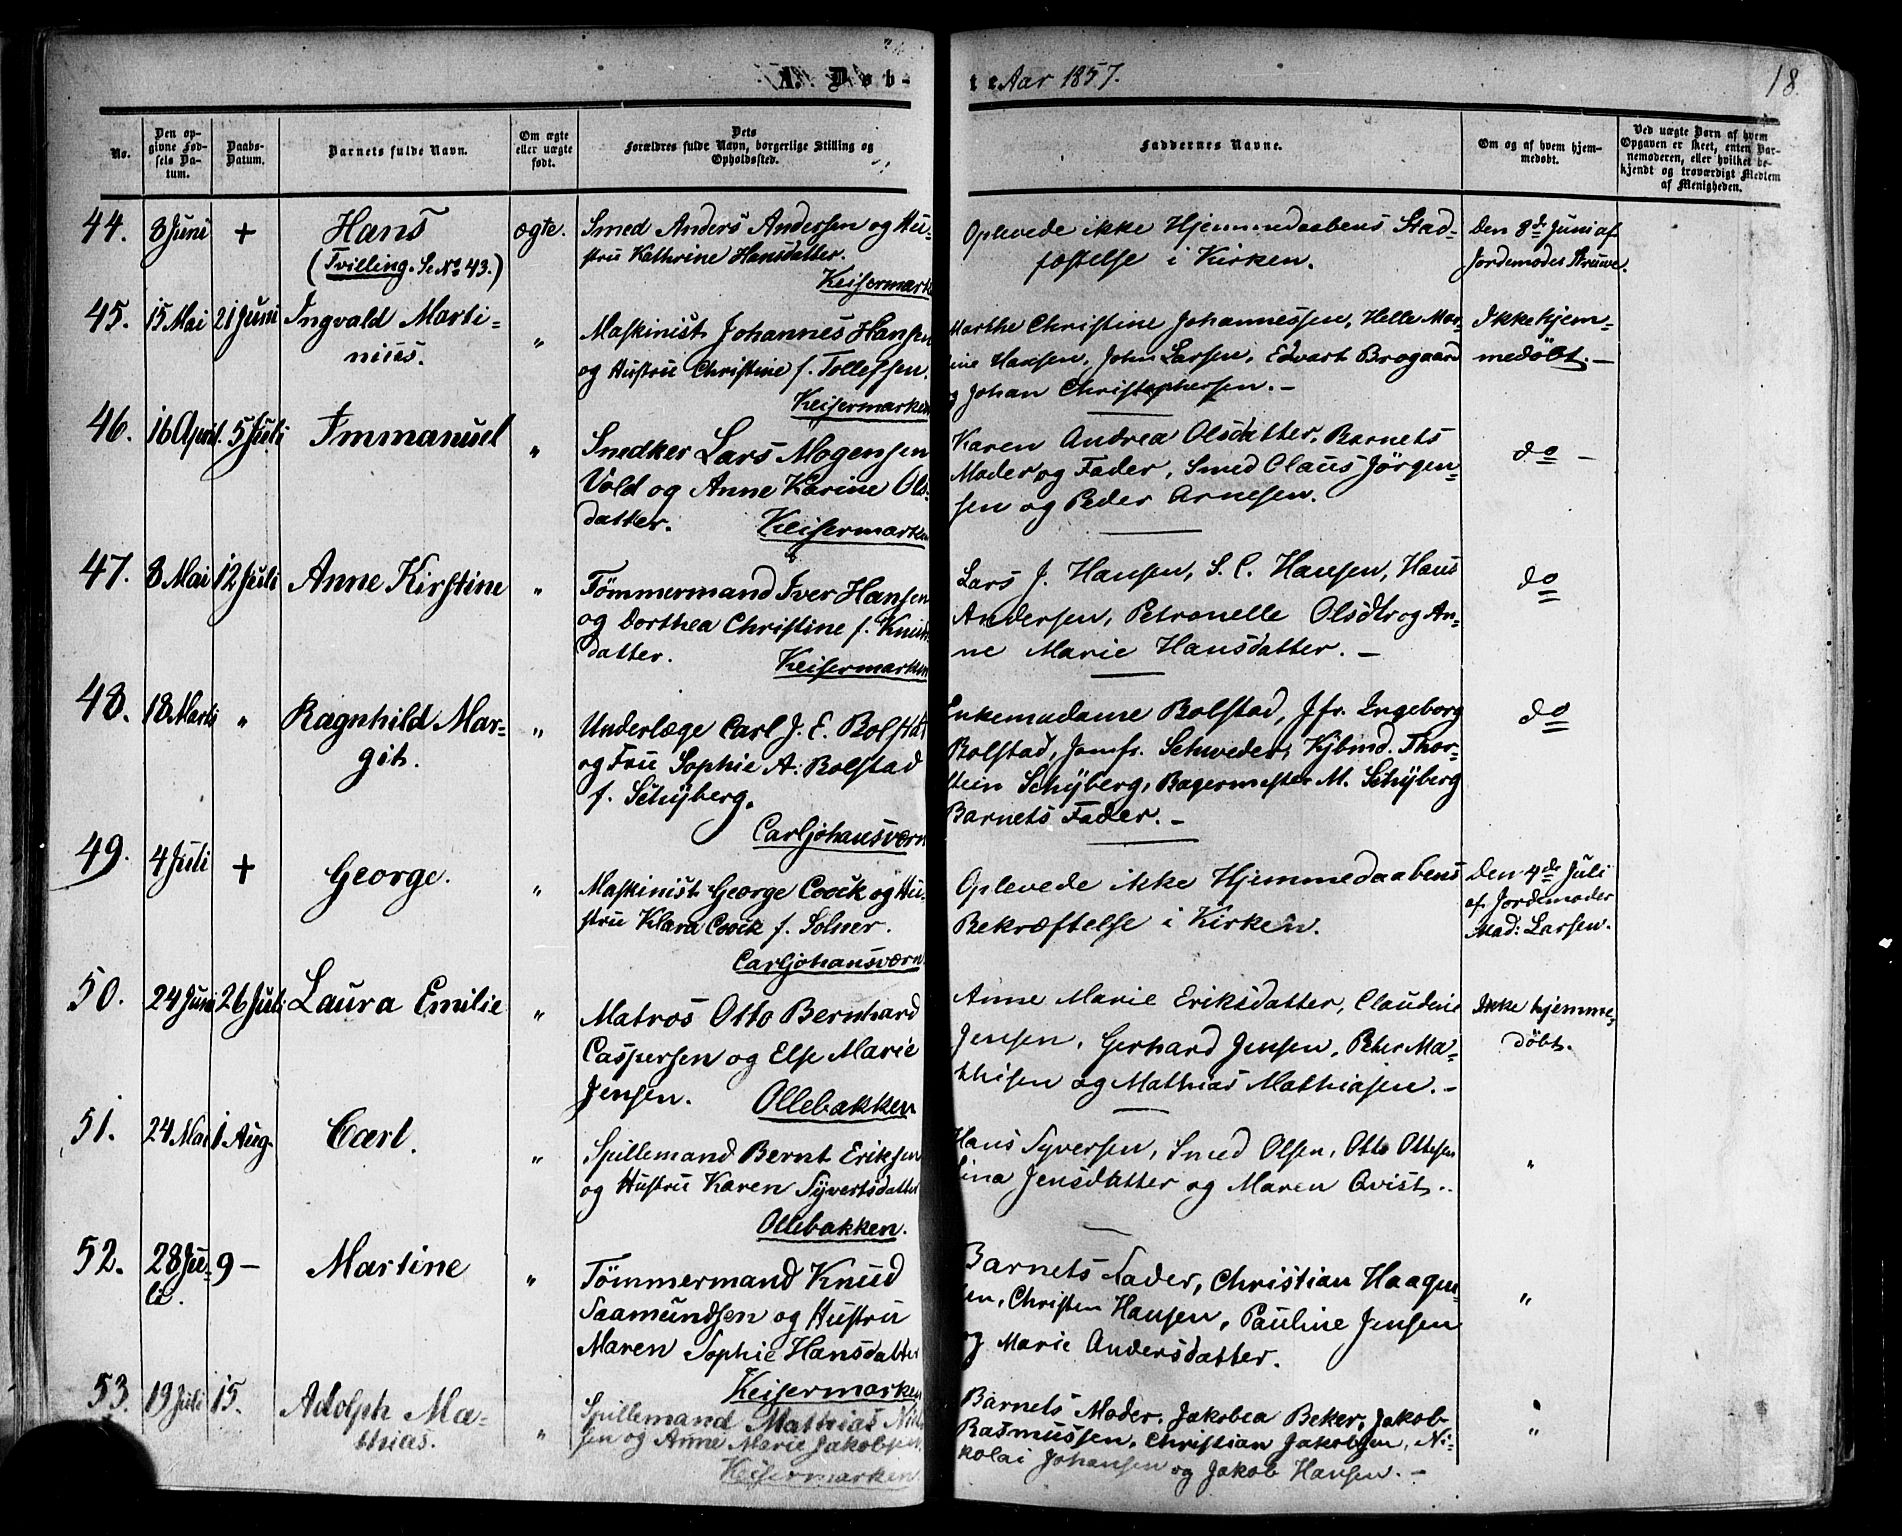 A. Døb-
te Aar 1857.
18.
No.
Den op-
givne Fød-
sels Da-
tum.
Daabs-
Datum.
Barnets fulde Navn.
Om ægte
eller uægte
født.
Dets
Forældres fulde Navn, borgerlige Stilling og
Opholdssted.
Faddernes Navne.
Om og af hvem hjem-
medøbt.
Ved uægte Børn af hvem
Opgaven er skeet, enten Bar-
nemoderen, eller hvilket be-
kjendt og troværdigt Medlem
af Menigheden.
44. 8 Juni + Hans ægte.
(Tvilling. Se No 43.)
Smed Anders Andersen og Hu-
stru Kathrine Hansdatter.
Keisermarke
Oplevede ikke Hjemmedaabens Stad-
fæstelse i Kirken.
Den 8de Juni af
Jordemodes Struwe.
45. 15 Mai 21 Juni Ingvald Marti-
nius. "
Maskinist Johannes Hansen
og Hustru Christine f. Tollefsen.
Keisermarken
Marthe Christine Johannessen, Helle Mar-
ine Hansen, John Larsen, Edvart Brogaard
og Johan Christophersen. –
Ikke hjem-
medöbt. –
46. 16 April. 5 Juli Immanuel "
Snedker Lars Mogensen
Vold og Anne Karine Ols-
datter. Keisermarken
Karen Andrea Olsdatter, Barnets
Moder og Fader, Smed Claus Jörgen-
sen og Peder Arnesen.
do –
47. 8 Mai 12 Juli Anne Kirstine "
Tömmermand Iver Hansen
og Dorthea Christine f. Knuds
datter. Keisermarken
Lars J. Hansen, S. C. Hansen, Hans
Andersen, Petronelle Olsdtr og An-
ne Marie Hansdatter. –
do
48. 18 Marts " Ragnhild Mar-
git. "
Underlæge Carl J. E. Bolstad
og Frue Sophie A. Bolstad
f. Schÿberg.
Carljohansværn
Enkemadame Bolstad, Jfr. Ingeborg
Bolstad, Jomfr. Schweder, Kjbmd. Thor-
stein Schÿberg, Bagermester M. Schÿberg
Barnets Fader. –
do
49. 4 Juli + George. "
Maskinist George Coock og Hu-
stru Klara Coock f. Solner.
Carljohansværn.
Oplevede ikke Hjemmedaabens
Bekræftelse i Kirken.
Den 4de Juli
af Jordemoder
Mad: Larsen.
50. 24 Juni 26 Juli Laura Emilie "
Matros Otto Bernhard
Caspersen og Else Marie
Jensen. Ollebakken
Anne Marie Eriksdatter, Claudine
Jensen, Gerhard Jensen, Peter Ma-
thisen og Mathias Mathiasen. –
Ikke hjemme-
döbt.
51. 24 Mai 1 Aug. Carl. "
Spillemand Bernt Eriksen
og Hustru Karen Syvertsdatter
Ollebakken.
Hans Syversen, Smed Olsen, Otto Ottesen
Lina Jensdatter og Maren Qvist.
"
52. 28 Ju-
li. 9 – Martine "
Tömmermand Knud
Saamundsen og Hustru
Maren Sophie Hansdatter
Keisermarken
Barnets Fader, Christian Haagen-
sen, Christen Hansen, Pauline Jensen
og Marie Andersdatter.
"
53. 19 Juli 15. Adolph Ma-
thias. "
Spillemand Mathias Nil-
sen og Anne Marie Jakobsen,
Keisermarken
Barnets Moder, Jakobea Beker, Jakob
Rasmussen, Christian Jakobsen, Ni-
kolai Johansen og Jakob Hansen. –
"